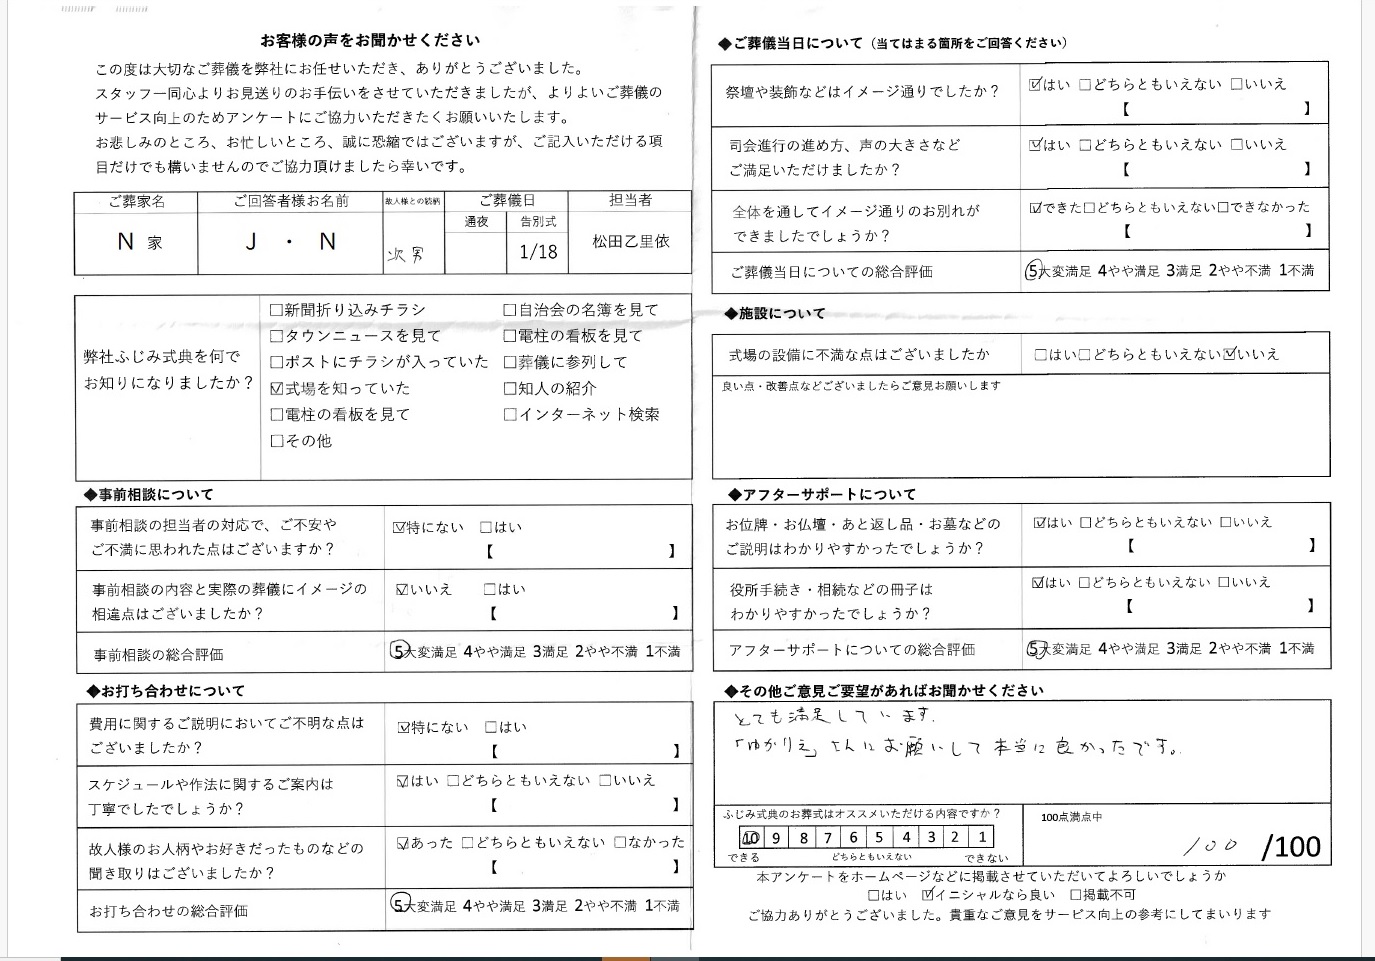 お客様の声をお聞かせください
この度は大切なご葬儀を弊社にお任せいただき、ありがとうございました。
スタッフ一同心よりお見送りのお手伝いをさせていただきましたが、よりよいご葬儀の
サービス向上のためアンケートにご協力いただきたくお願いいたします。
お悲しみのところ、お忙しいところ、誠に恐縮ではございますが、ご記入いただける項
目だけでも構いませんのでご協力頂けましたら幸いです。
ご葬家名 ご回答者様お名前 故人様との続柄 ご葬儀日 担当者
通夜 告別式
N 家 J ・ N 次男 1/18 松田乙里依
弊社ふじみ式典を何で
お知りになりましたか？
□新聞折り込みチラシ □自治会の名簿を見て
□タウンニュースを見て □電柱の看板を見て
□ポストにチラシが入っていた □葬儀に参列して
☑式場を知っていた □知人の紹介
□電柱の看板を見て □インターネット検索
□その他
◆事前相談について
事前相談の担当者の対応で、ご不安や
ご不満に思われた点はございますか？
☑特にない □はい
【 】
事前相談の内容と実際の葬儀にイメージの
相違点はございましたか？
☑いいえ □はい
【 】
事前相談の総合評価 5大変満足 4やや満足 3満足 2やや不満 1不満
◆お打ち合わせについて
費用に関するご説明においてご不明な点は
ございましたか？
☑特にない □はい
【 】
スケジュールや作法に関するご案内は
丁寧でしたでしょうか？
☑はい □どちらともいえない □いいえ
【 】
故人様のお人柄やお好きだったものなどの
聞き取りはございましたか？
☑あった □どちらともいえない □なかった
【 】
お打ち合わせの総合評価 5大変満足 4やや満足 3満足 2やや不満 1不満
◆ご葬儀当日について（当てはまる箇所をご回答ください）
祭壇や装飾などはイメージ通りでしたか？
☑はい □どちらともいえない □いいえ
【 】
司会進行の進め方、声の大きさなど
ご満足いただけましたか？
☑はい □どちらともいえない □いいえ
【 】
全体を通してイメージ通りのお別れが
できましたでしょうか？
☑できた□どちらともいえない□できなかった
【 】
ご葬儀当日についての総合評価 5大変満足 4やや満足 3満足 2やや不満 1不満
◆施設について
式場の設備に不満な点はございましたか □はい□どちらともいえない☑いいえ
良い点・改善点などございましたらご意見お願いします
◆アフターサポートについて
お位牌・お仏壇・あと返し品・お墓などの
ご説明はわかりやすかったでしょうか？
☑はい □どちらともいえない □いいえ
【 】
役所手続き・相続などの冊子は
わかりやすかったでしょうか？
☑はい □どちらともいえない □いいえ
【 】
アフターサポートについての総合評価 5大変満足 4やや満足 3満足 2やや不満 1不満
◆その他ご意見ご要望があればお聞かせください
とても満足しています。
「ゆかりえ」さんにお願いして本当に良かったです。
ふじみ式典のお葬式はオススメいただける内容ですか？
10 9 8 7 6 5 4 3 2 1
できる どちらともいえない できない
100点満点中
100 /100
本アンケートをホームページなどに掲載させていただいてよろしいでしょうか
□はい ☑イニシャルなら良い □掲載不可
ご協力ありがとうございました。貴重なご意見をサービス向上の参考にしてまいります